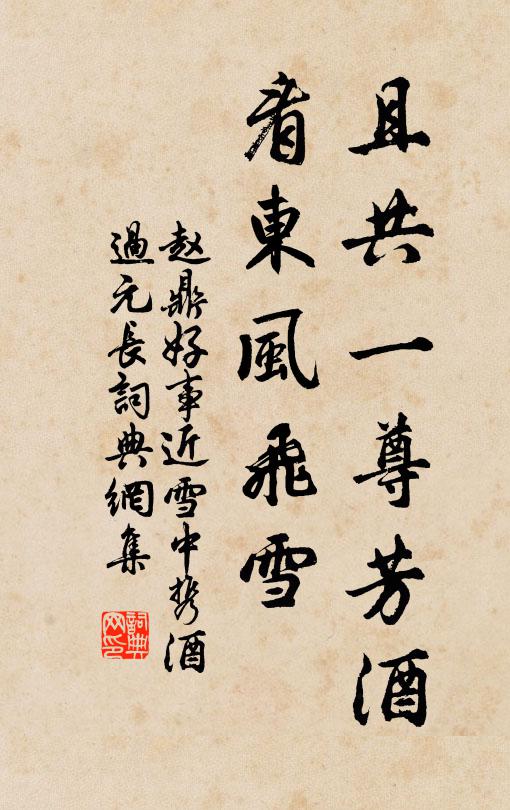 且共一尊芳酒
看東風飛雪
赵鼎好事近雪中携酒
過元長詞典網集
詞典网印